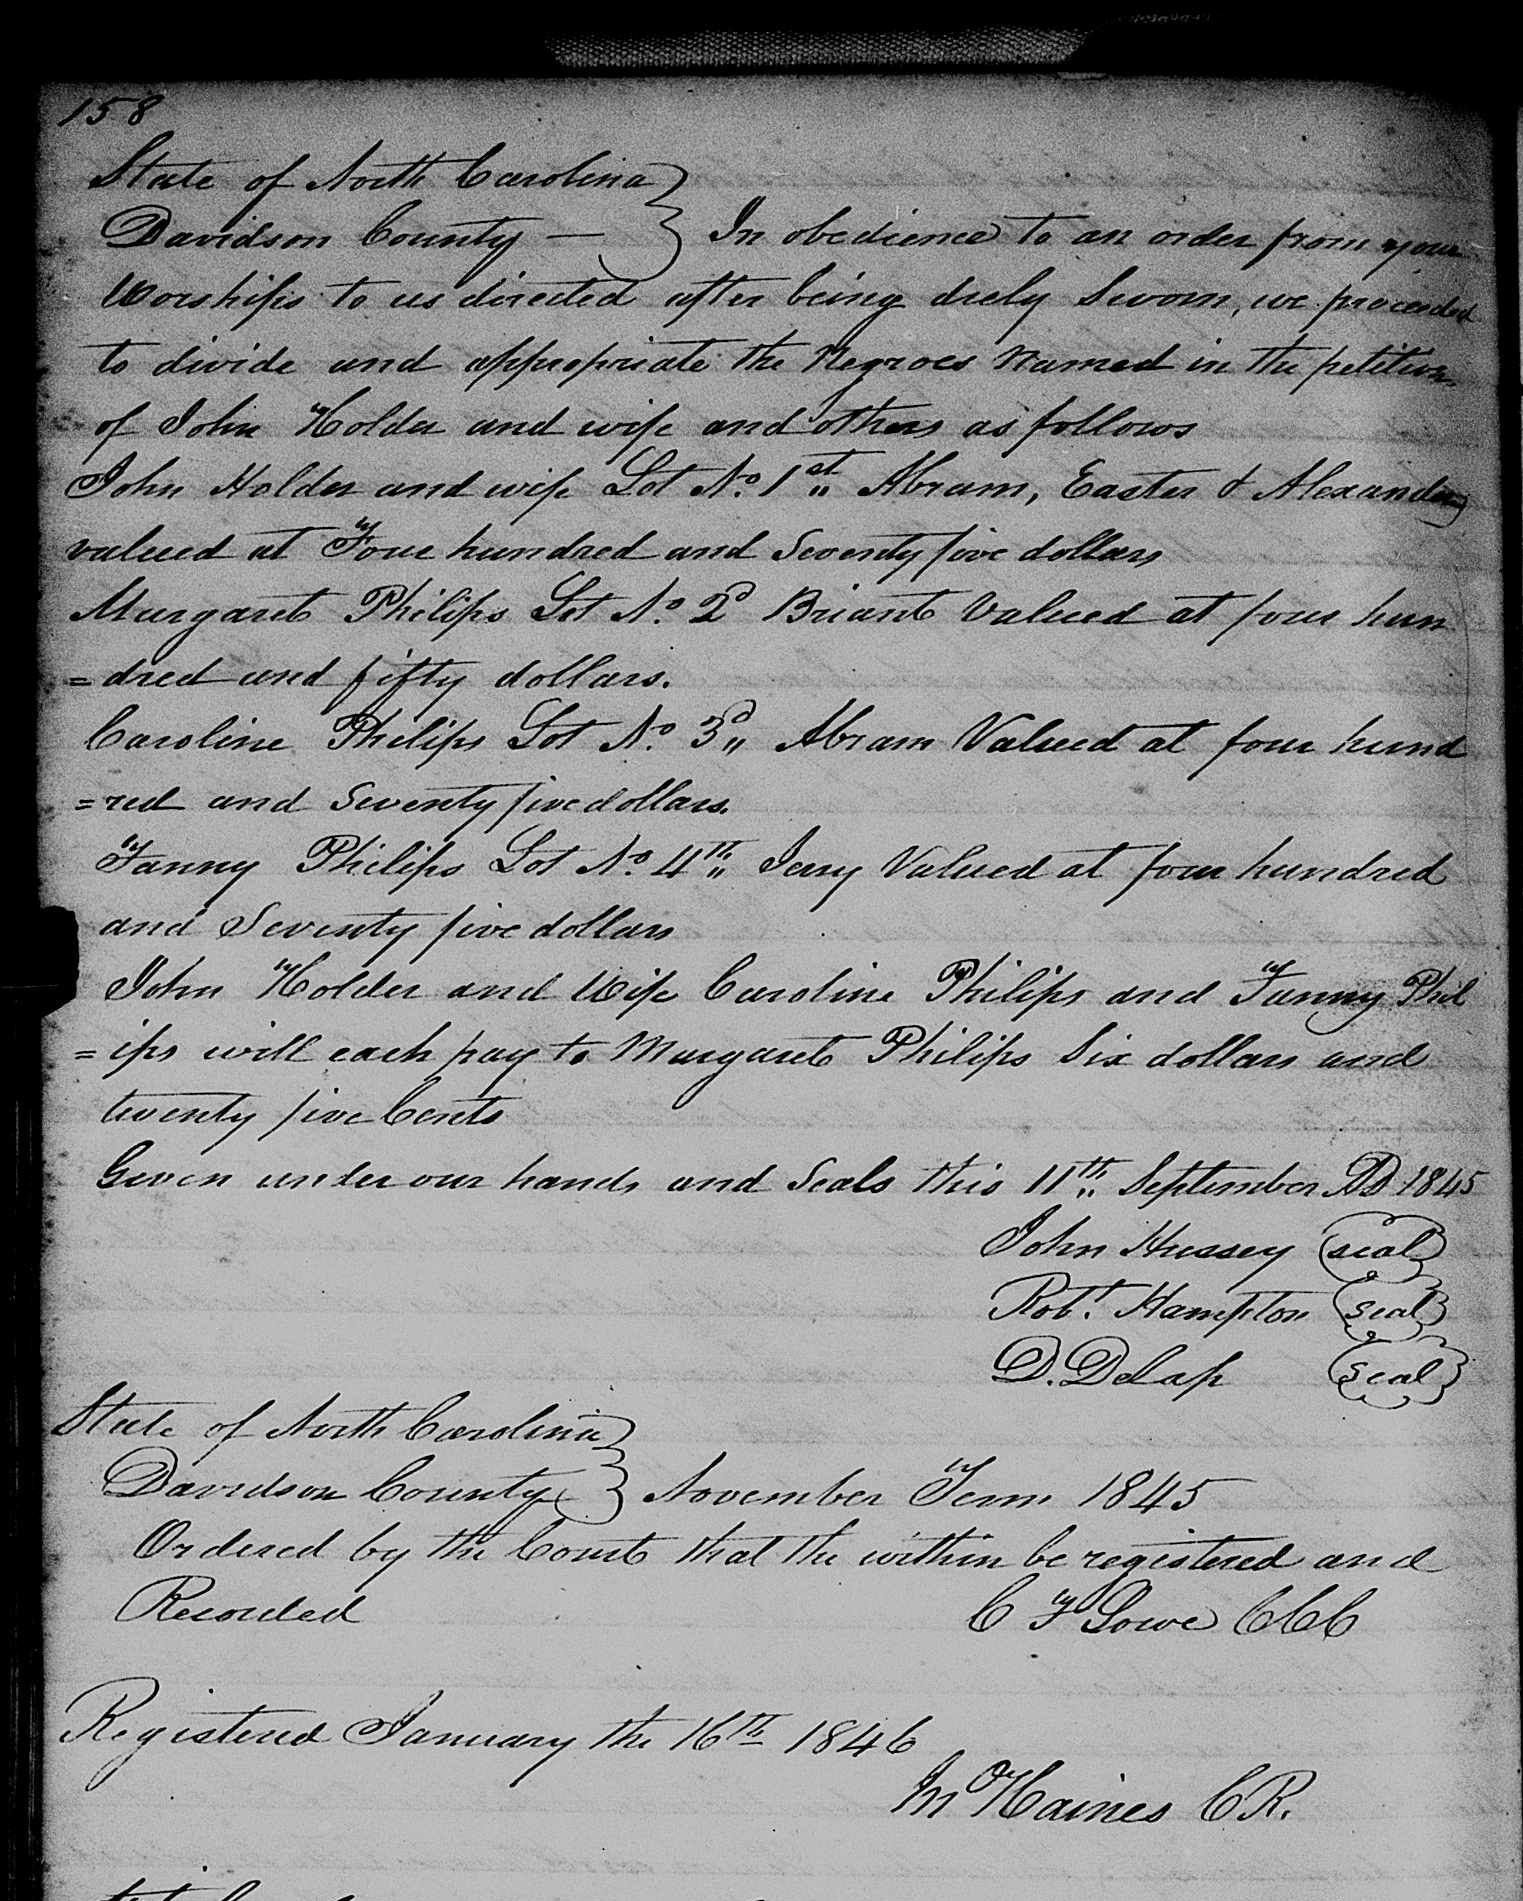 158
State of North Carolina
Davidson County — In obedience to an order from your
Worships to us directed after being duly Sworn, we proceeded
to divide and appropriate the Negroes Named in the petition
of John Holder and wife and others as follows
John Holder and wife Lot No. 1st Abram, Easter & Alexander
valued at Four hundred and Seventy five dollars
Margaret Philips Lot No. 2d Briant Valued at four hun
=dred and fifty dollars.
Caroline Philips Lot No. 3d Abram Valued at four hund
=red and Seventy five dollars.
Fanny Philips Lot No. 4th Jerry Valued at four hundred
and Seventy five dollars
John Holder and Wife Caroline Philips and Fanny Phil
=ips will each pay to Margaret Philips Six dollars and
twenty five Cents
Given under our hands and Seals this 11th September AD 1845
John Hussey seal
Robt. Hampton seal
D. Delap seal
State of North Carolina
Davidson County November Term 1845
Ordered by the Court that the within be registered and
Recorded C F Lowe CCC
Registered January the 16th 1846
Haines C R.